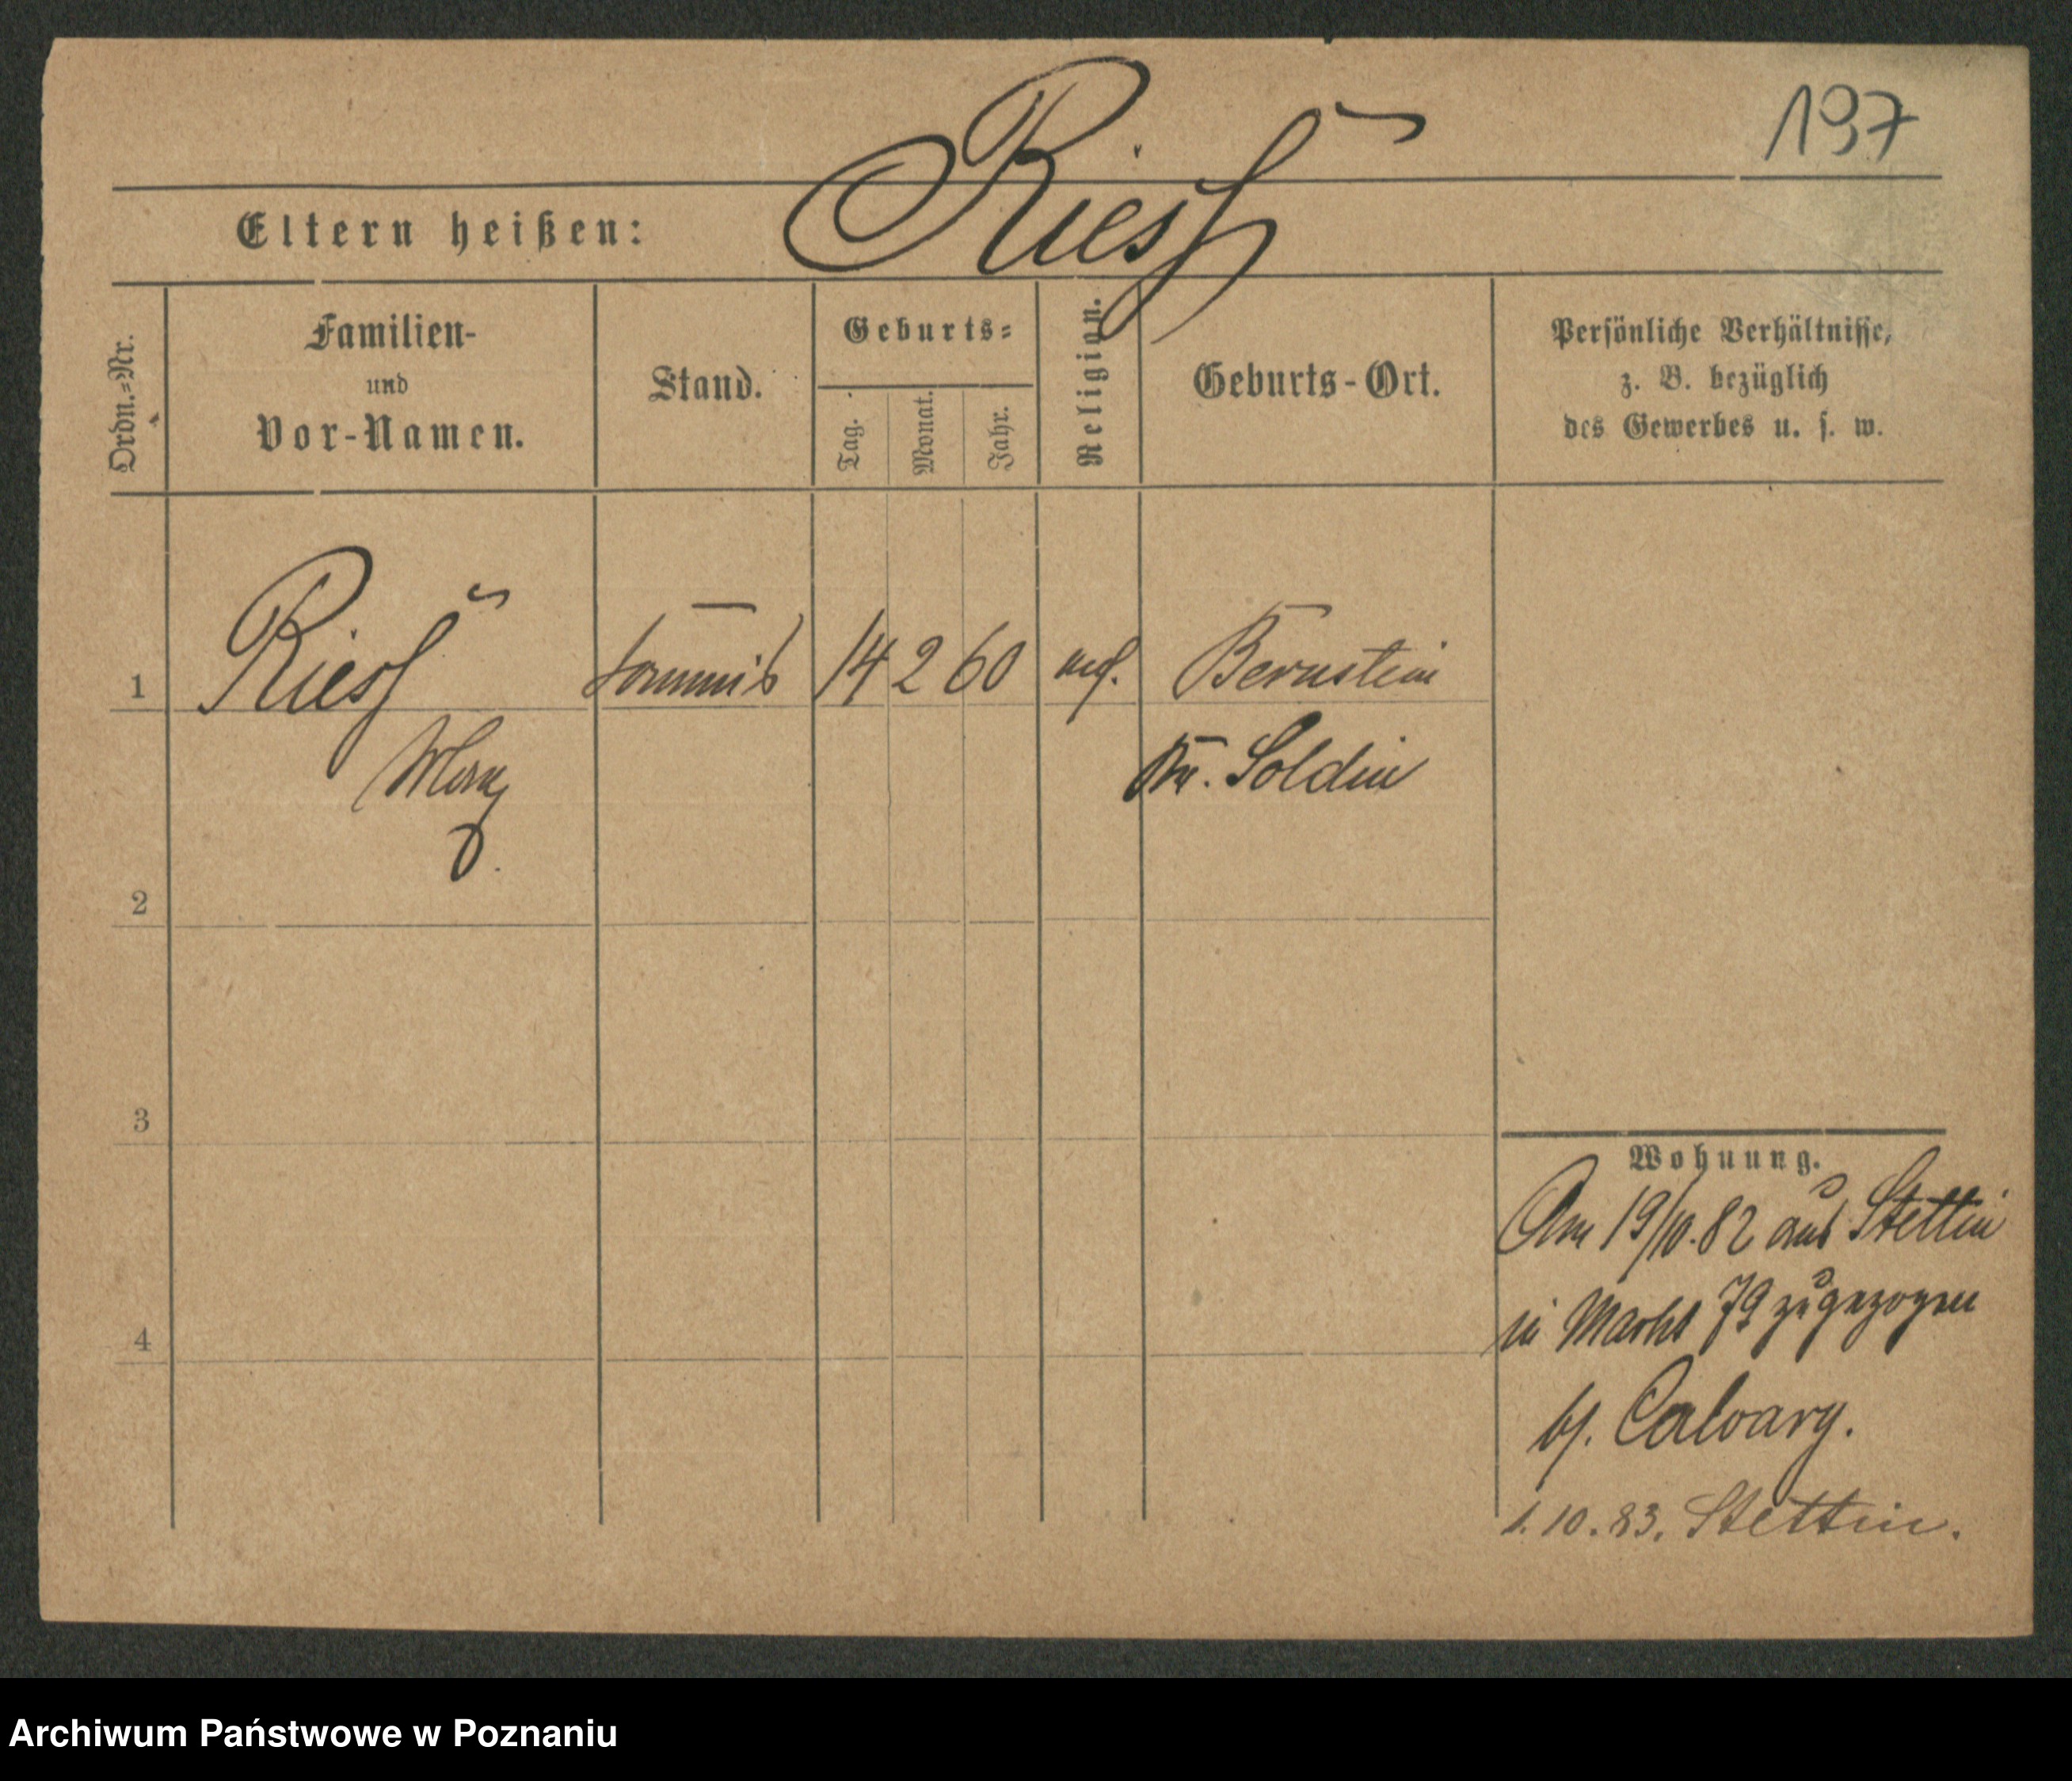 197
Riess
Eltern heißen:
Ordn.-Nr.
Familien-
und
Vor-Namen.
Stand.
Geburts-
Tag.
Monat.
Jahr.
Religion.
Geburts-Ort.
Persönliche Verhältnisse,
z. B. bezüglich
des Gewerbes u. s. w.
1 Riess Commis 14 2 60 Bernstein
Kr. Soldin
2
3
4
Wohnung.
Am 19/10.82 aus Stettin
in Markt 79 zugezogen
b/. Calvary.
1.10.83. Stettin.
Archiwum Państwowe w Poznaniu